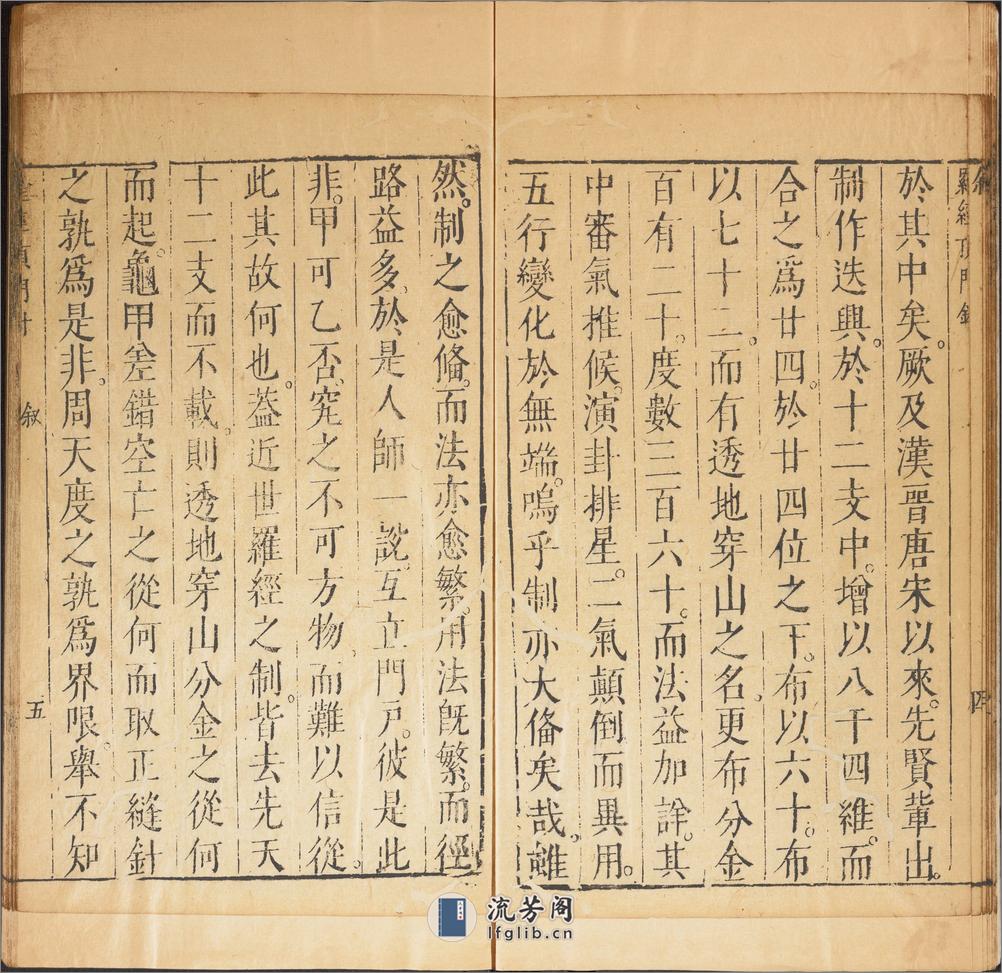 羅經頂門針
叙
四
於其中矣。厥及漢晉唐宋以來。先賢輩出。
制作迭興。於十二支中。增以八干四維。而
合之爲廿四。於廿四位之下。布以六十。布
以七十二。而有透地穿山之名。更布分金
百有二十。度數三百六十。而法益加詳。其
中審氣推候。演卦排星。二氣顛倒而異用。
五行變化於無端。嗚乎制亦大俻矣哉。雖
然。制之愈俻。而法亦愈繁。用法旣繁。而徑
路益多。於是人師一說。互立門戸。彼是此
非。甲可乙否。究之不可方物。而難以信從。
此其故何也。葢近世羅經之制。皆去先天
十二支而不載。則透地穿山分金之從何
而起。龜甲差錯空亡之從何而取。正縫針
之孰爲是非。周天度之孰爲界限。舉不知
叙
五
流芳阁
lfglib.cn